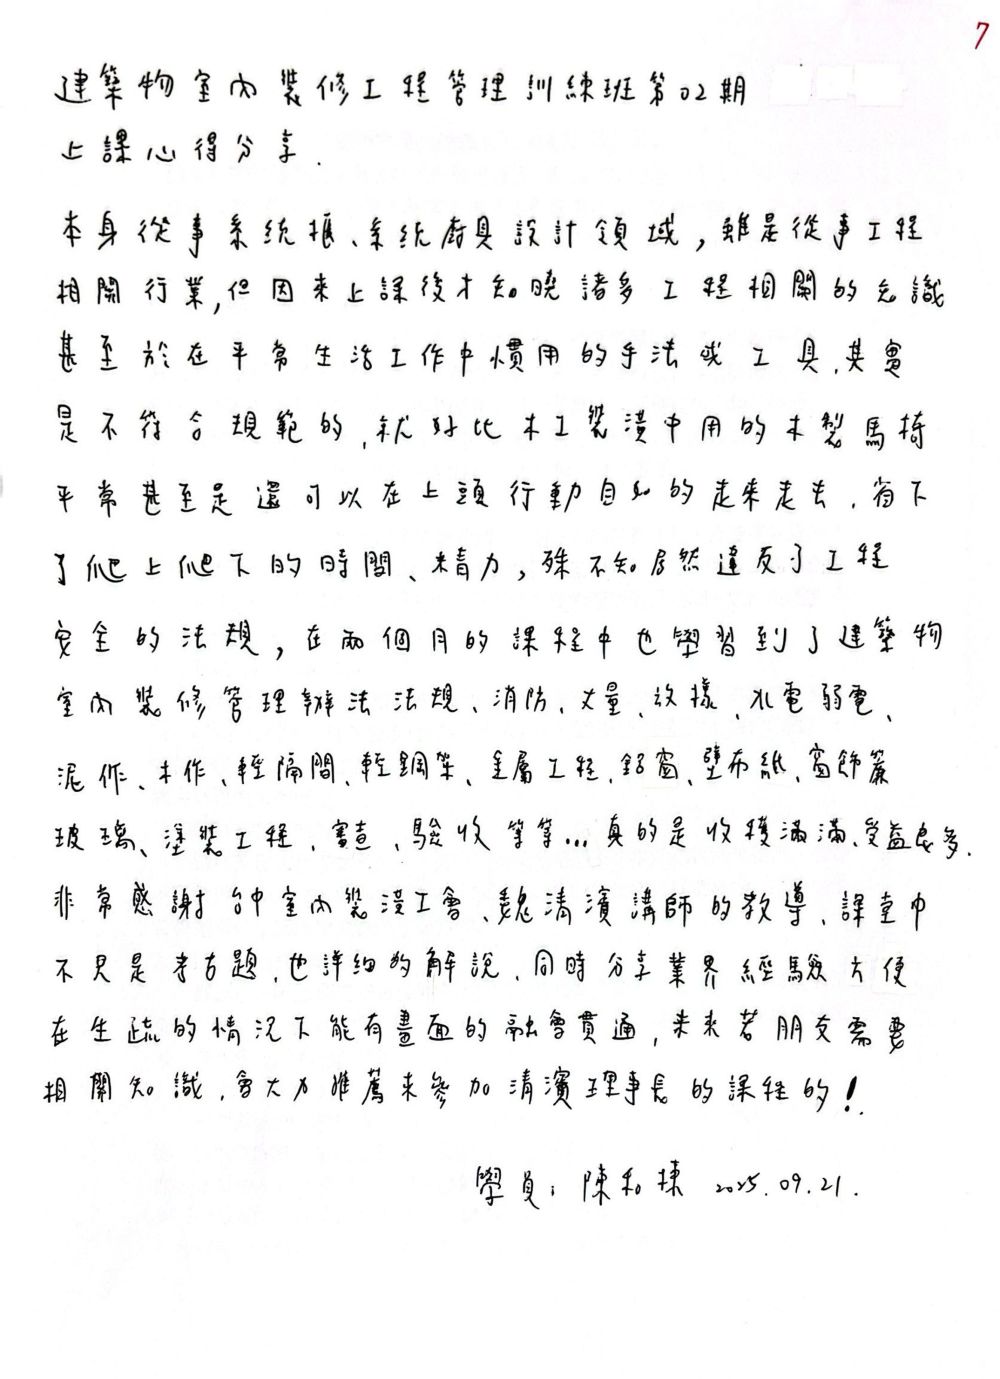 7
建築物室內裝修工程管理訓練班第02期
上課心得分享.
本身從事系統櫃、系統廚具設計領域,雖是從事工程
相關行業,但因來上課後才知曉諸多工程相關的知識
甚至於在平常生活工作中慣用的手法或工具,其實
是不符合規範的,就好比木工裝潢中用的木製馬椅
平常甚至是還可以在上頭行動自如的走來走去,省下
了爬上爬下的時間、精力,殊不知居然違反了工程
安全的法規,在兩個月的課程中也學習到了建築物
室內裝修管理辦法法規、消防、丈量、放樣、水電弱電、
泥作、木作、輕隔間、輕鋼架、金屬工程、鋁窗、壁布紙、窗飾簾
玻璃、塗裝工程、審查、驗收等等...真的是收穫滿滿、受益良多.
非常感謝台中室內裝修工會、魏清濱講師的教導、課堂中
不只是考古題,也詳細的解說,同時分享業界經驗方便
在生疏的情況下能有畫面的融會貫通,未來若朋友需要
相關知識,會大力推薦來參加清濱理事長的課程的!.
學員:陳和棟 2025.09.21.